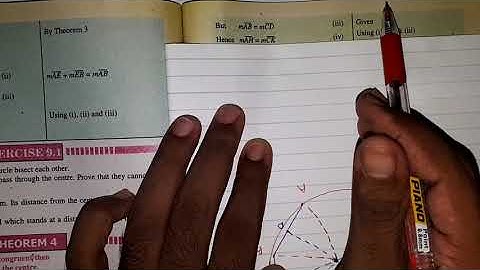 By Theorem 3
(ii)
mAE + mEB = mAB
(iii)
Using (i), (ii) and (iii)
But mAB = mCD.
(iii)
Given
Hence mAH = mCK
(iv)
Using (i)
(iii)
ERCISE 9.1
rcle bisect each other.
pass through the centre. Prove that they cannot
m. Its distance from the cen
l which stands at a dista
HEOREM 4
congruent then
the centre.
PIANO
Point
0.8mm